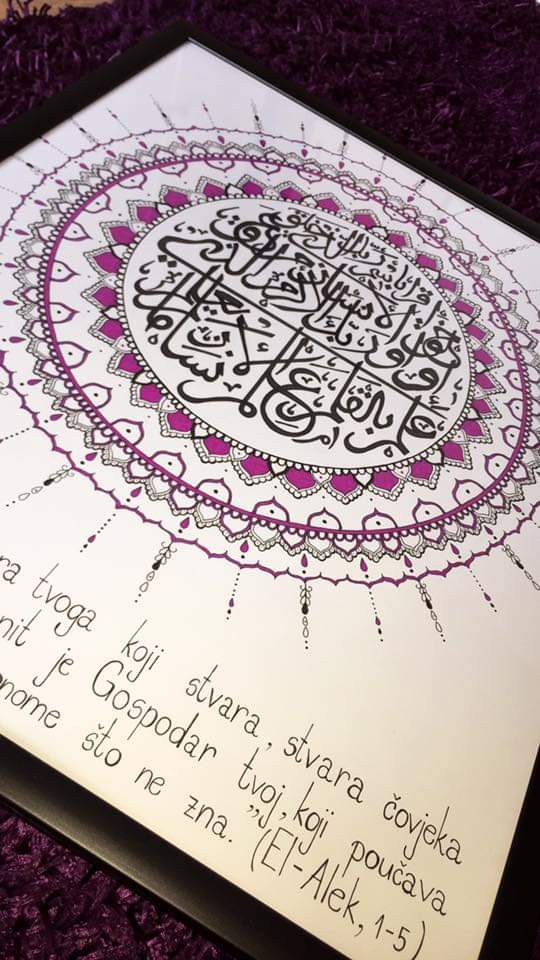 اقرأ باسم ربك الذي خلق
خلق الإنسان من علق
اقرأ وربك الأكرم الذي
علم بالقلم علم الإنسان ما لم يعلم
ra tvoga koji stvara, stvara čovjeka
nit je Gospodar tvoj, koji poučava
nome što ne zna.” (El-Alek, 1-5)